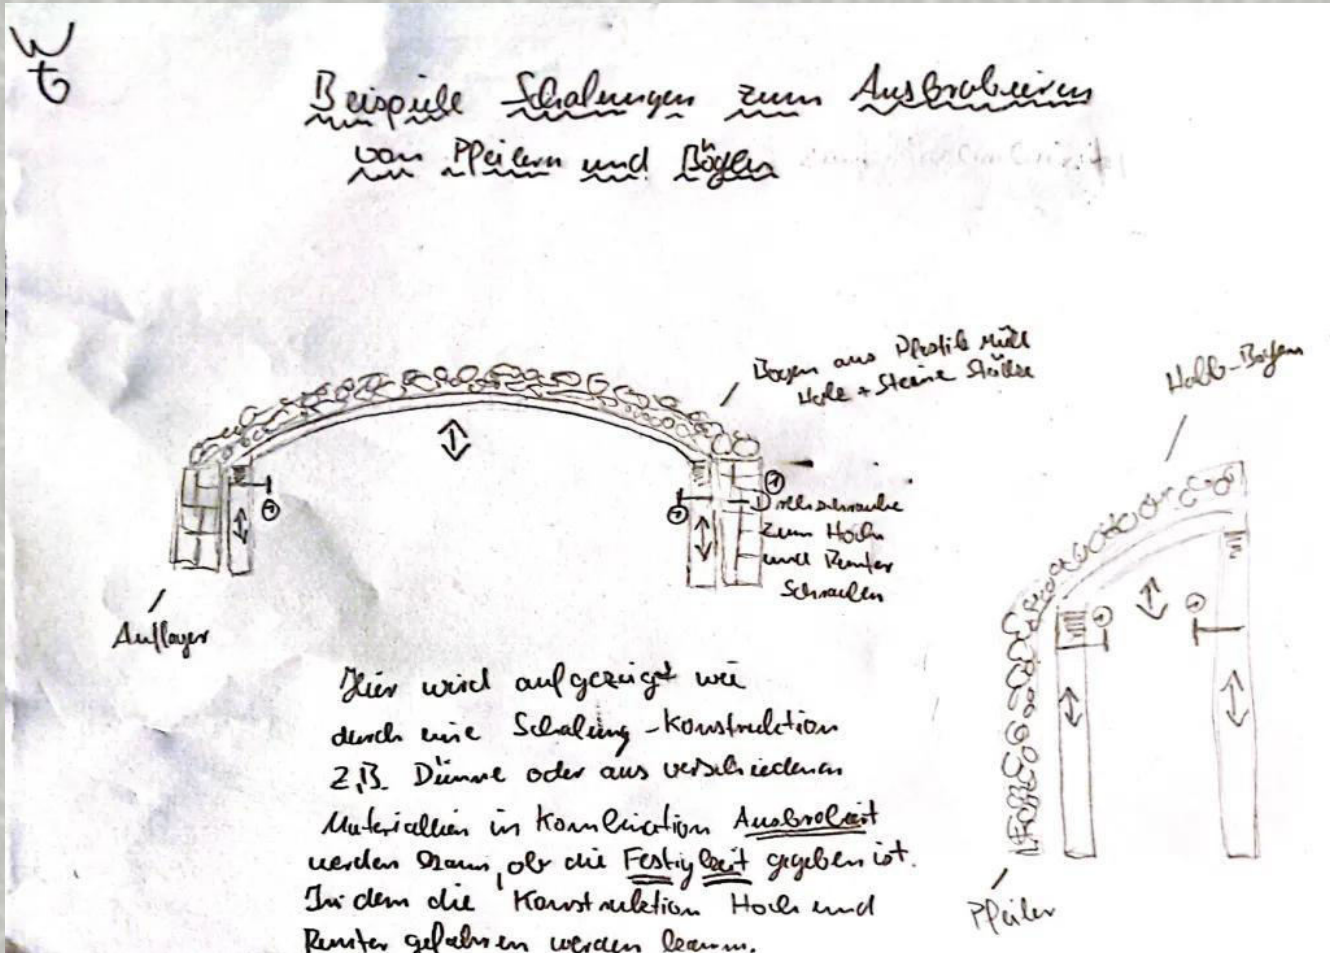 Beispiele Schalungen zum Ausbrobieren
von Pfeilern und Bögen
Bogen aus Plastik Müll
Holz + Steine Stütze
Halb-Bogen
1
1
1
Drehschraube
zum Hoch
und Runter
Schrauben
1
1
Auflager
Hier wird aufgezeigt wie
durch eine Schalung-Konstruktion
z.B. Dünne oder aus verschiedenen
Materialien in Kombination Ausbrobiert
werden kann, ob die Festigkeit gegeben ist.
In dem die Konstruktion Hoch und
Runter gefahren werden kann.
Pfeiler